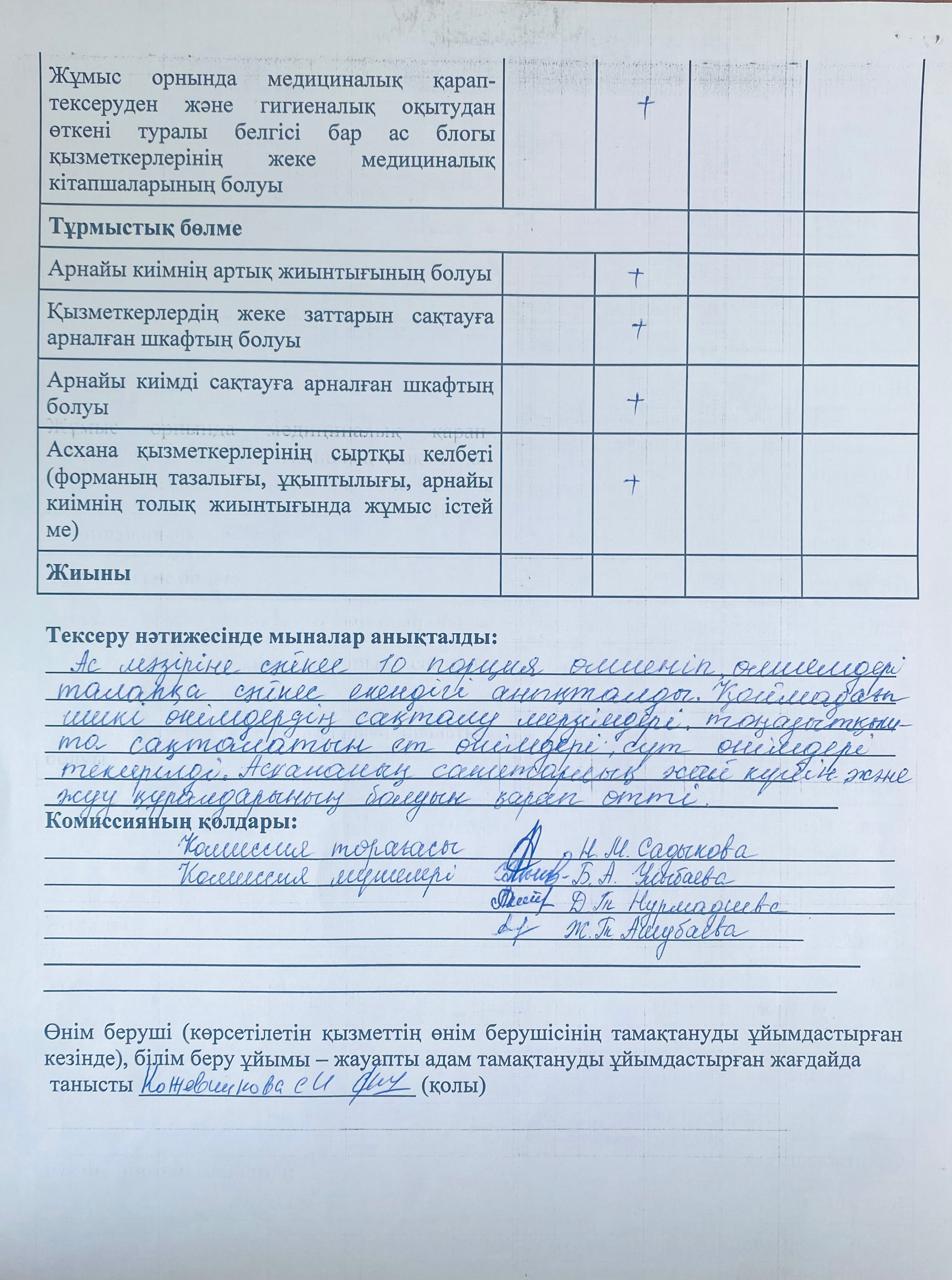 Жұмыс орнында медициналық қарап-
тексеруден және гигиеналық оқытудан
өткені туралы белгісі бар ас блогы
қызметкерлерінің жеке медициналық
кітапшаларының болуы
+
Тұрмыстық бөлме
Арнайы киімнің артық жиынтығының болуы +
Қызметкерлердің жеке заттарын сақтауға
арналған шкафтың болуы
+
Арнайы киімді сақтауға арналған шкафтың
болуы
+
Асхана қызметкерлерінің сыртқы келбеті
(форманың тазалығы, ұқыптылығы, арнайы
киімнің толық жиынтығында жұмыс істей
ме)
+
Жиыны
Тексеру нәтижесінде мыналар анықталды:
Ас мәзіріне сәйкес 10 порция өлшеніп, өлшемдері
талапқа сәйкес екендігі анықталды. Қоймадағы
шикі өнімдердің сақталу мерзімдері, тоңазытқыш-
та сақталатын ет өнімдері, сүт өнімдері
тексерілді. Асхананың санитарлық жай күйін және
жуу құралдарының болуын қарап өтті.
Комиссияның қолдары:
Комиссия төрағасы Н.М. Садыкова
Комиссия мүшелері Б.А.
Д.Т. Нурмадиева
Ж.Т. Ашубаева
Өнім беруші (көрсетілетін қызметтің өнім берушісінің тамақтануды ұйымдастырған
кезінде), білім беру ұйымы – жауапты адам тамақтануды ұйымдастырған жағдайда
танысты Кожевникова С И (қолы)